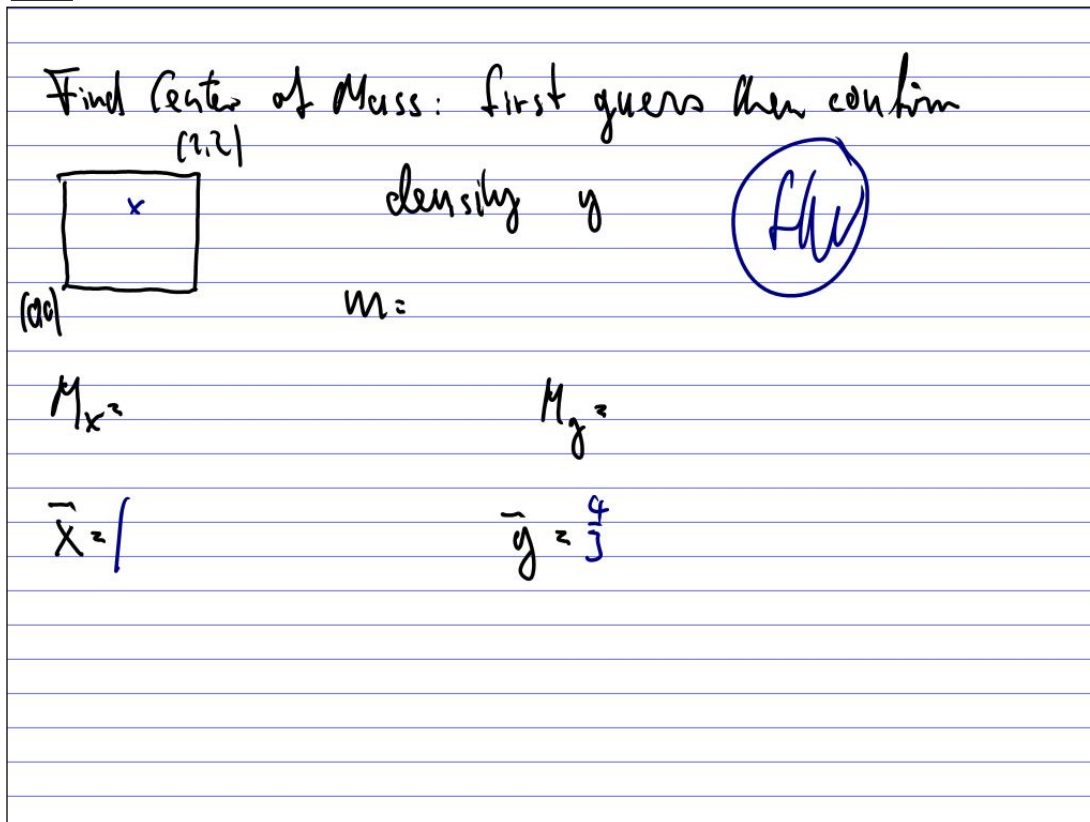 Find Center of Mass: first guess then confirm
(2,2)
x
density y
HW
(0,0)
m=
Mx= My=
x̄=1 ȳ=4/3